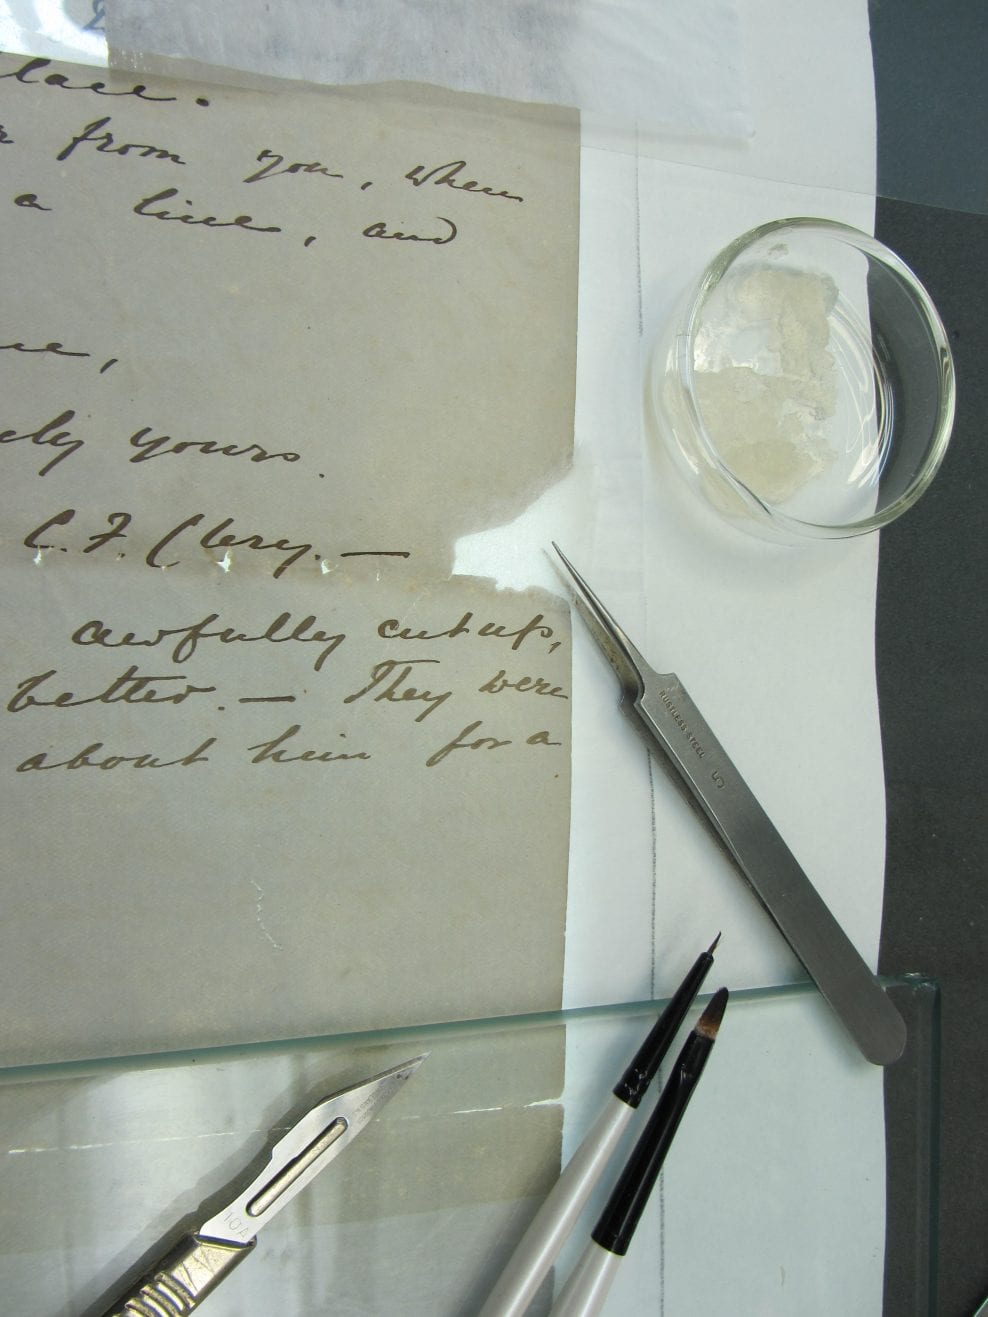 lace.
from you, when
a line, and
ely yours.
C. F. Clery. —
awfully cut up,
better. — They were
about him for a
RUSTLESS STEEL 5
10A